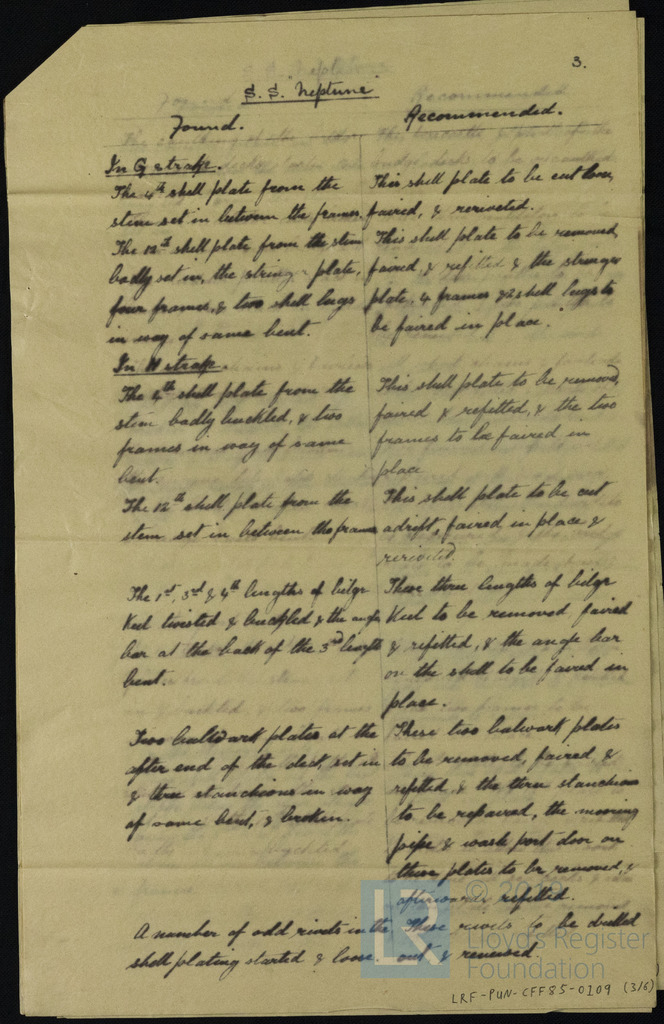 3.
S. S. "Neptune"
Found.
Recommended.
In G strake.
The 4th shell plate from the
stem set in between the frames.
The 12th shell plate from the stem
badly set in, the stringer plate,
four frames, & two shell lugs
in way of same bent.
This shell plate to be cut loose,
faired, & reriveted.
This shell plate to be removed,
faired, & refitted & the stringer
plate, 4 frames & 2 shell lugs to
be faired in place.
In H strake.
The 4th shell plate from the
stem badly buckled, & two
frames in way of same
bent.
The 12th shell plate from the
stem set in between the frames
This shell plate to be removed,
faired & refitted, & the two
frames to be faired in
place
This shell plate to be cut
adrift, faired in place &
reriveted.
The 1st, 3rd & 4th lengths of bilge
Keel twisted & buckled & the angle
bar at the back of the 3rd length
bent.
These three lengths of bilge
Keel to be removed faired
& refitted, & the angle bar
on the shell to be faired in
place.
Two bulwark plates at the
after end of the deck, set in
& three stanchions in way
of same bent, & broken.
These two bulwark plates
to be removed, faired, &
refitted, & the three stanchions
to be repaired, the mooring
pipe & wash port door on
these plates to be removed, &
afterwards refitted.
A number of odd rivets in the
shell plating started & loose.
These rivets to be drilled
out & renewed
LR
Lloyd's Register
Foundation
LRF-PUN-CFF85-0109 (3/6)